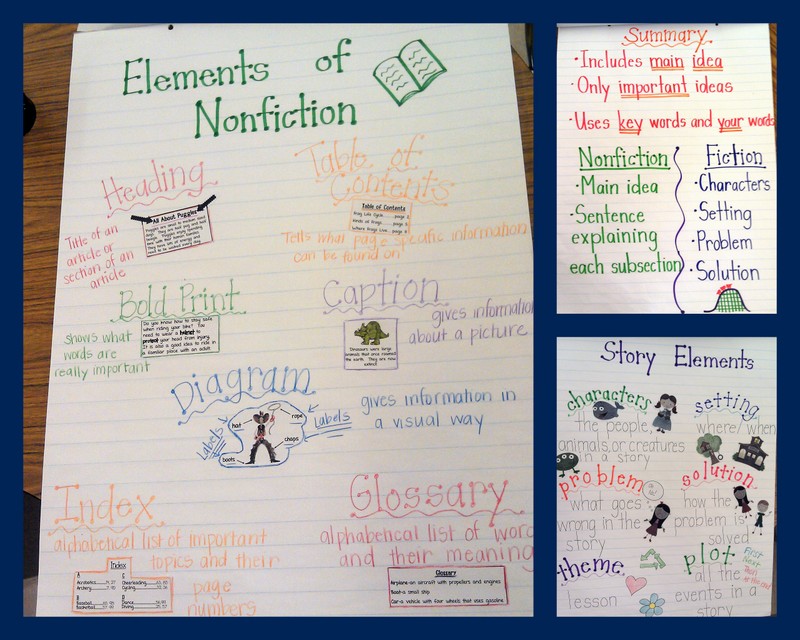 Elements of
Nonfiction
Heading
All About Puggles
Title of an
article or
section of an
article
Table of
Contents
Table of Contents
Frog Life Cycle ..... page 2
Kinds of Frogs ..... page
Where Frogs Live ..... page
Tells what page specific information
can be found on
Bold Print
shows what
words are
really important
Do you know how to stay safe
when riding your bike? You
need to wear a helmet to
protect your head from injury.
It is also a good idea to ride in
a familiar place with an adult.
Caption
gives information
about a picture
Dinosaurs were large
animals that once roamed
the earth. They are now
extinct.
Diagram
gives information in
a visual way
Labels
hat
boots
rope
chaps
Labels
Index
alphabetical list of important
topics and their
page
numbers
Index
A
C
B
D
Glossary
alphabetical list of word
and their meaning
Glossary
Airplane-an aircraft with propellers and engines
Boat-a small ship
Car-a vehicle with four wheels that uses gasoline
Summary
•Includes main idea
•Only important ideas
•Uses key words and your words
Nonfiction
•Main idea
•Sentence
explaining
each subsection
Fiction
•Characters
•Setting
•Problem
•Solution
Story Elements
characters
the people,
animals, or creatures
in a story
setting
where/when
problem
what goes
wrong in the
story
solution
how the
problem is
solved
theme
lesson
plot
First
Next
Then
all the
events in a
story